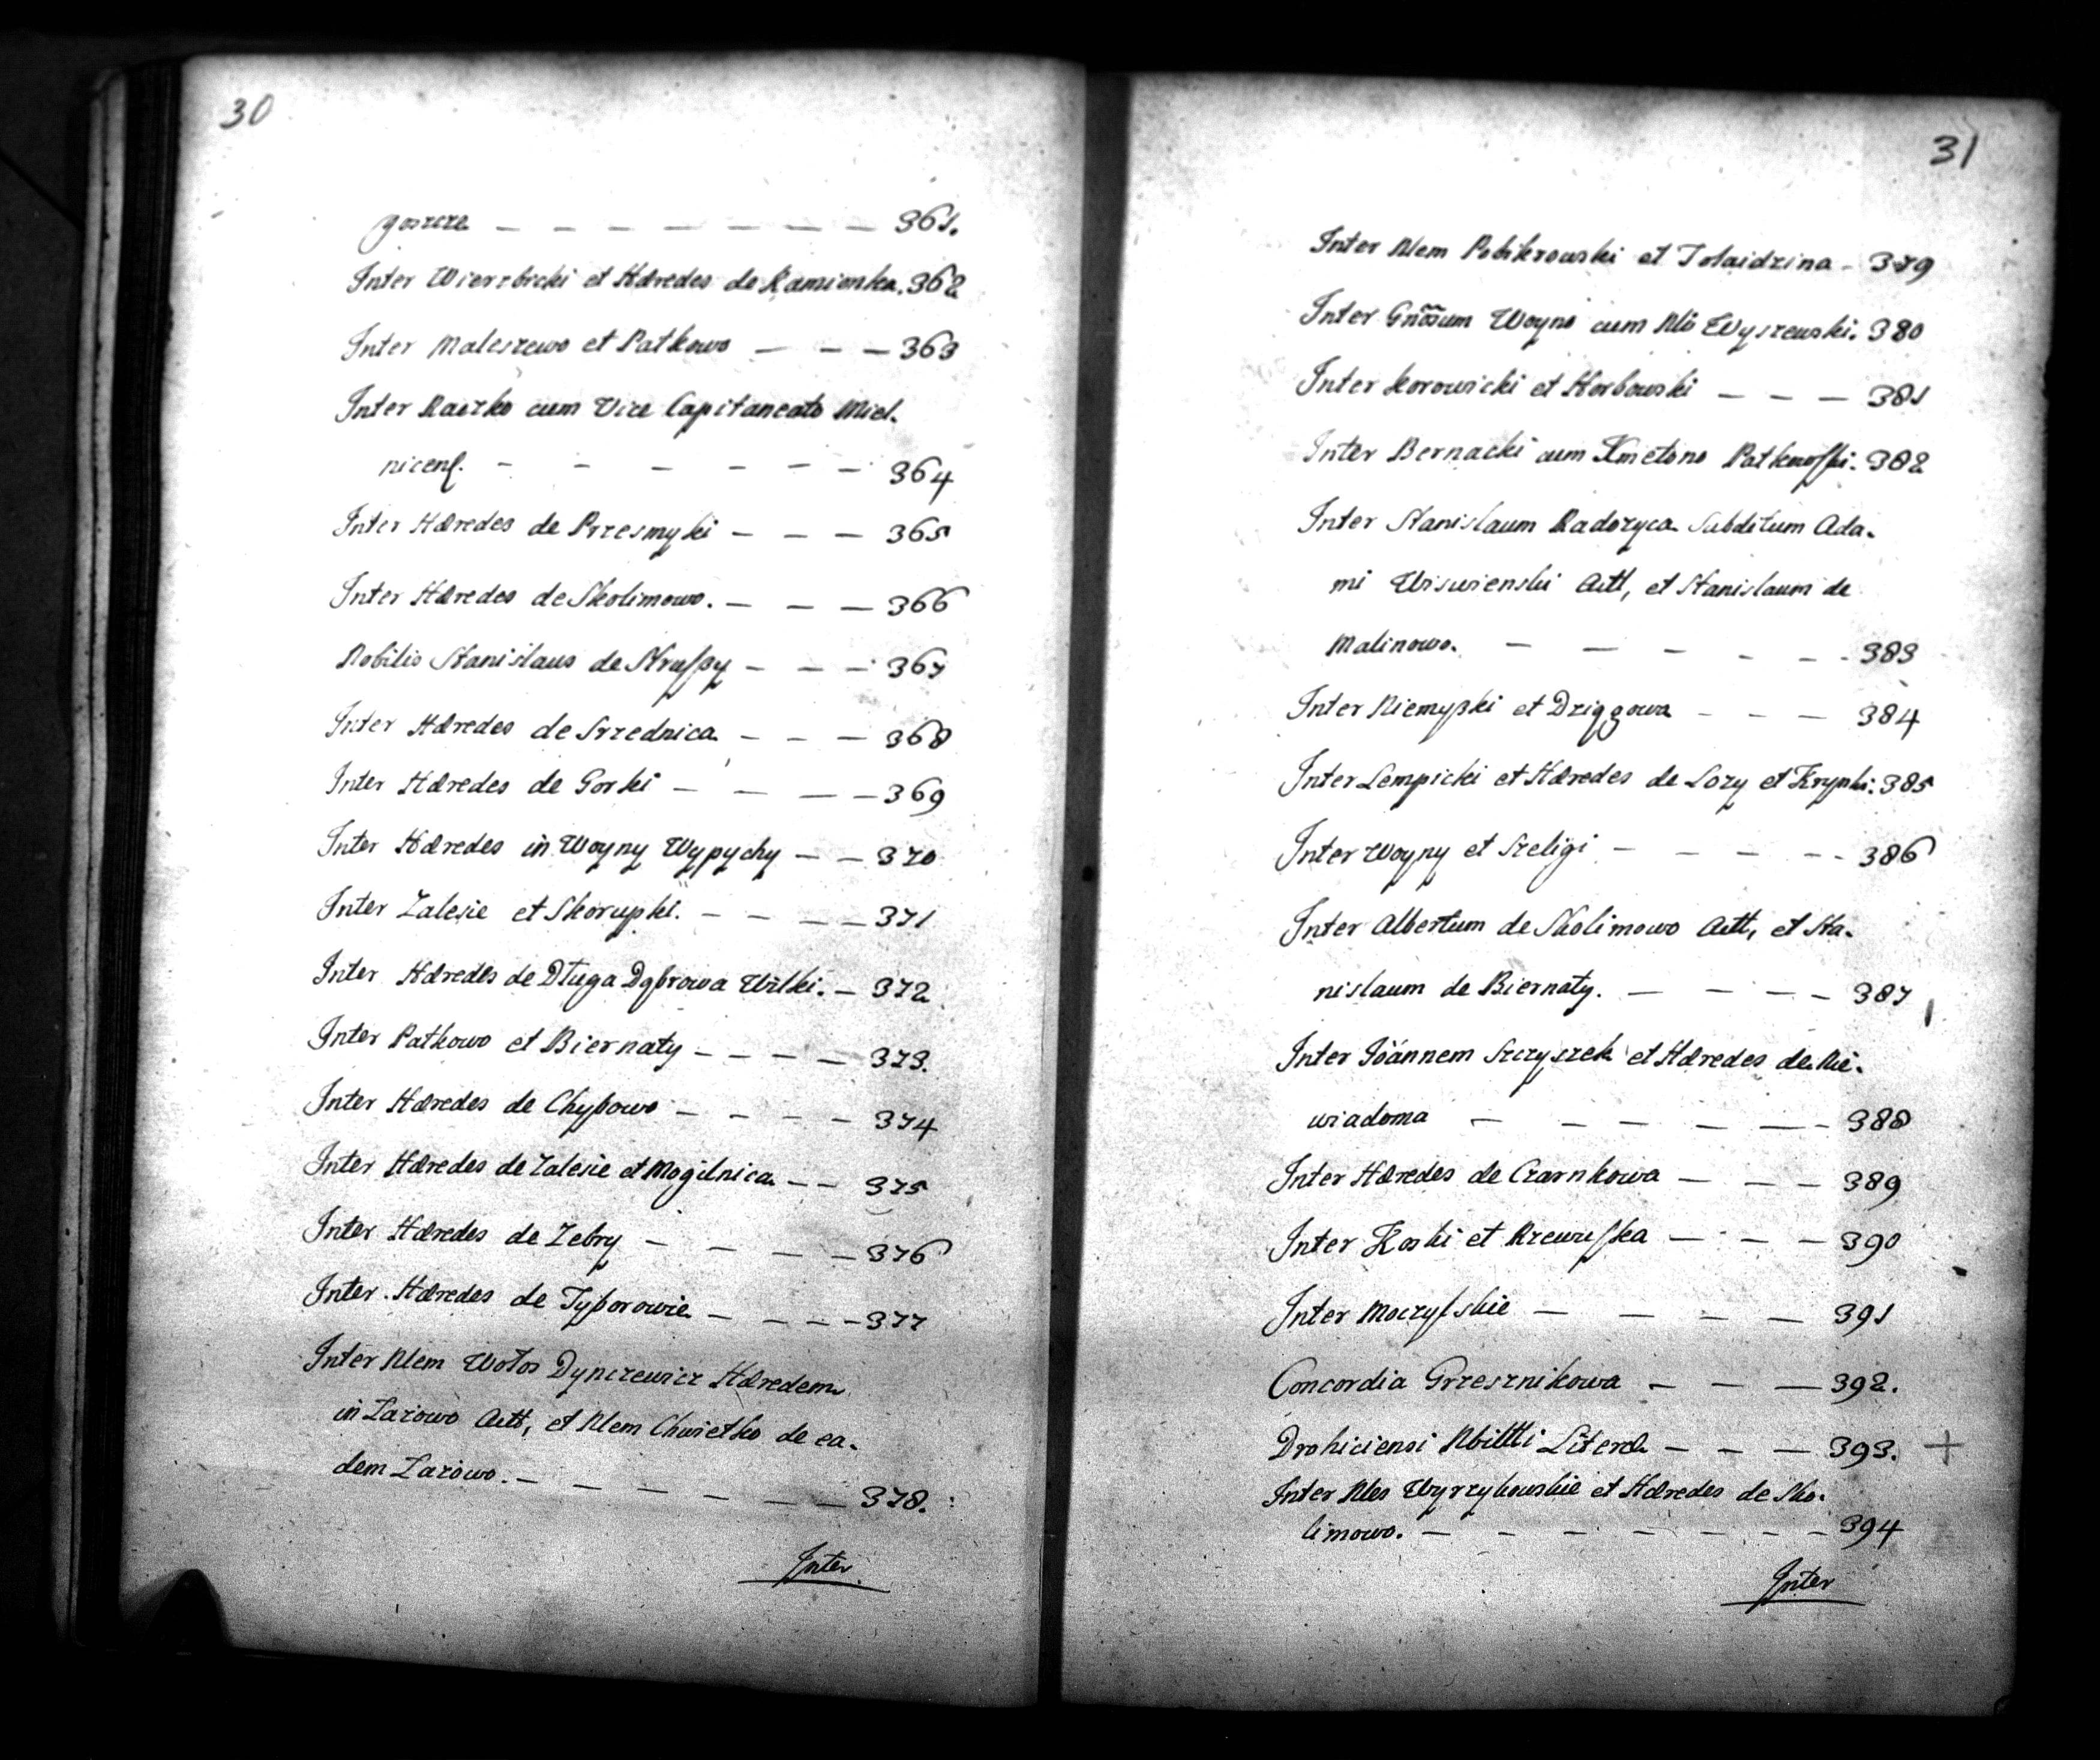 30
goszcze — — — — — — — 361.
Inter Wierzbicki et Hæredes de Kamionka. 362
Inter Maleszewo et Patkowo — — — 363
Inter Raczko cum Vice Capitaneato Miel-
nicens. — — — — — — 364
Inter Hæredes de Przesmyki — — — 365
Inter Hæredes de Skolimowo. — — — 366
Nobilis Stanislaus de Skrussy — — — 367
Inter Hæredes de Srzednica — — — 368
Inter Hæredes de Gorki — — — — 369
Inter Hæredes in Woyny Wypychy — — 370
Inter Zalesie et Skorupki. — — — — 371
Inter Hæredes de Długa Dąbrowa Wilki. — 372
Inter Patkowo et Biernaty — — — — 373.
Inter Hæredes de Chybowo — — — — 374
Inter Hæredes de Zalesie et Mogilnica — — 375
Inter Hæredes de Zebry — — — — 376
Inter Hæredes de Tyborowie — — — — 377
Inter Nlem Wołos Dynczewicz Hæredem
in Łazowo Actt, et Nlem Chwietko de ea-
dem Łazowo. — — — — — — 378.
Inter
31
Inter Nlem Pobikrowski et Tolaidzina — 379
Inter Gnõsum Woyno cum Nlõ Wyszewski. 380
Inter Korowicki et Horbowski — — — 381
Inter Bernacki cum Kmetone Patkowski. 382
Inter Stanislaum Radozyca Subditum Ada-
mi Wiswienski Actt, et Stanislaum de
Malinowo. — — — — — — 383
Inter Niemyski et Dziggowa — — — 384
Inter Lempicki et Hæredes de Lozy et Krypki. 385
Inter Woyny et Szeligi — — — — — 386
Inter Albertum de Skolimowo Actt, et Sta-
nislaum de Biernaty. — — — — 387
Inter Joannem Szczyszek et Hæredes de Nie-
wiadoma — — — — — — 388
Inter Hæredes de Czarnkowa — — — 389
Inter Koski et Rzewuska — — — 390
Inter Moczydskie — — — — 391
Concordia Grzesznikowa — — — 392.
Drohiciensi Nbilltti Literæ — — — 393. +
Inter Nles Wyrzykowskie et Hæredes de Sko-
limowo. — — — — — — — 394
Inter